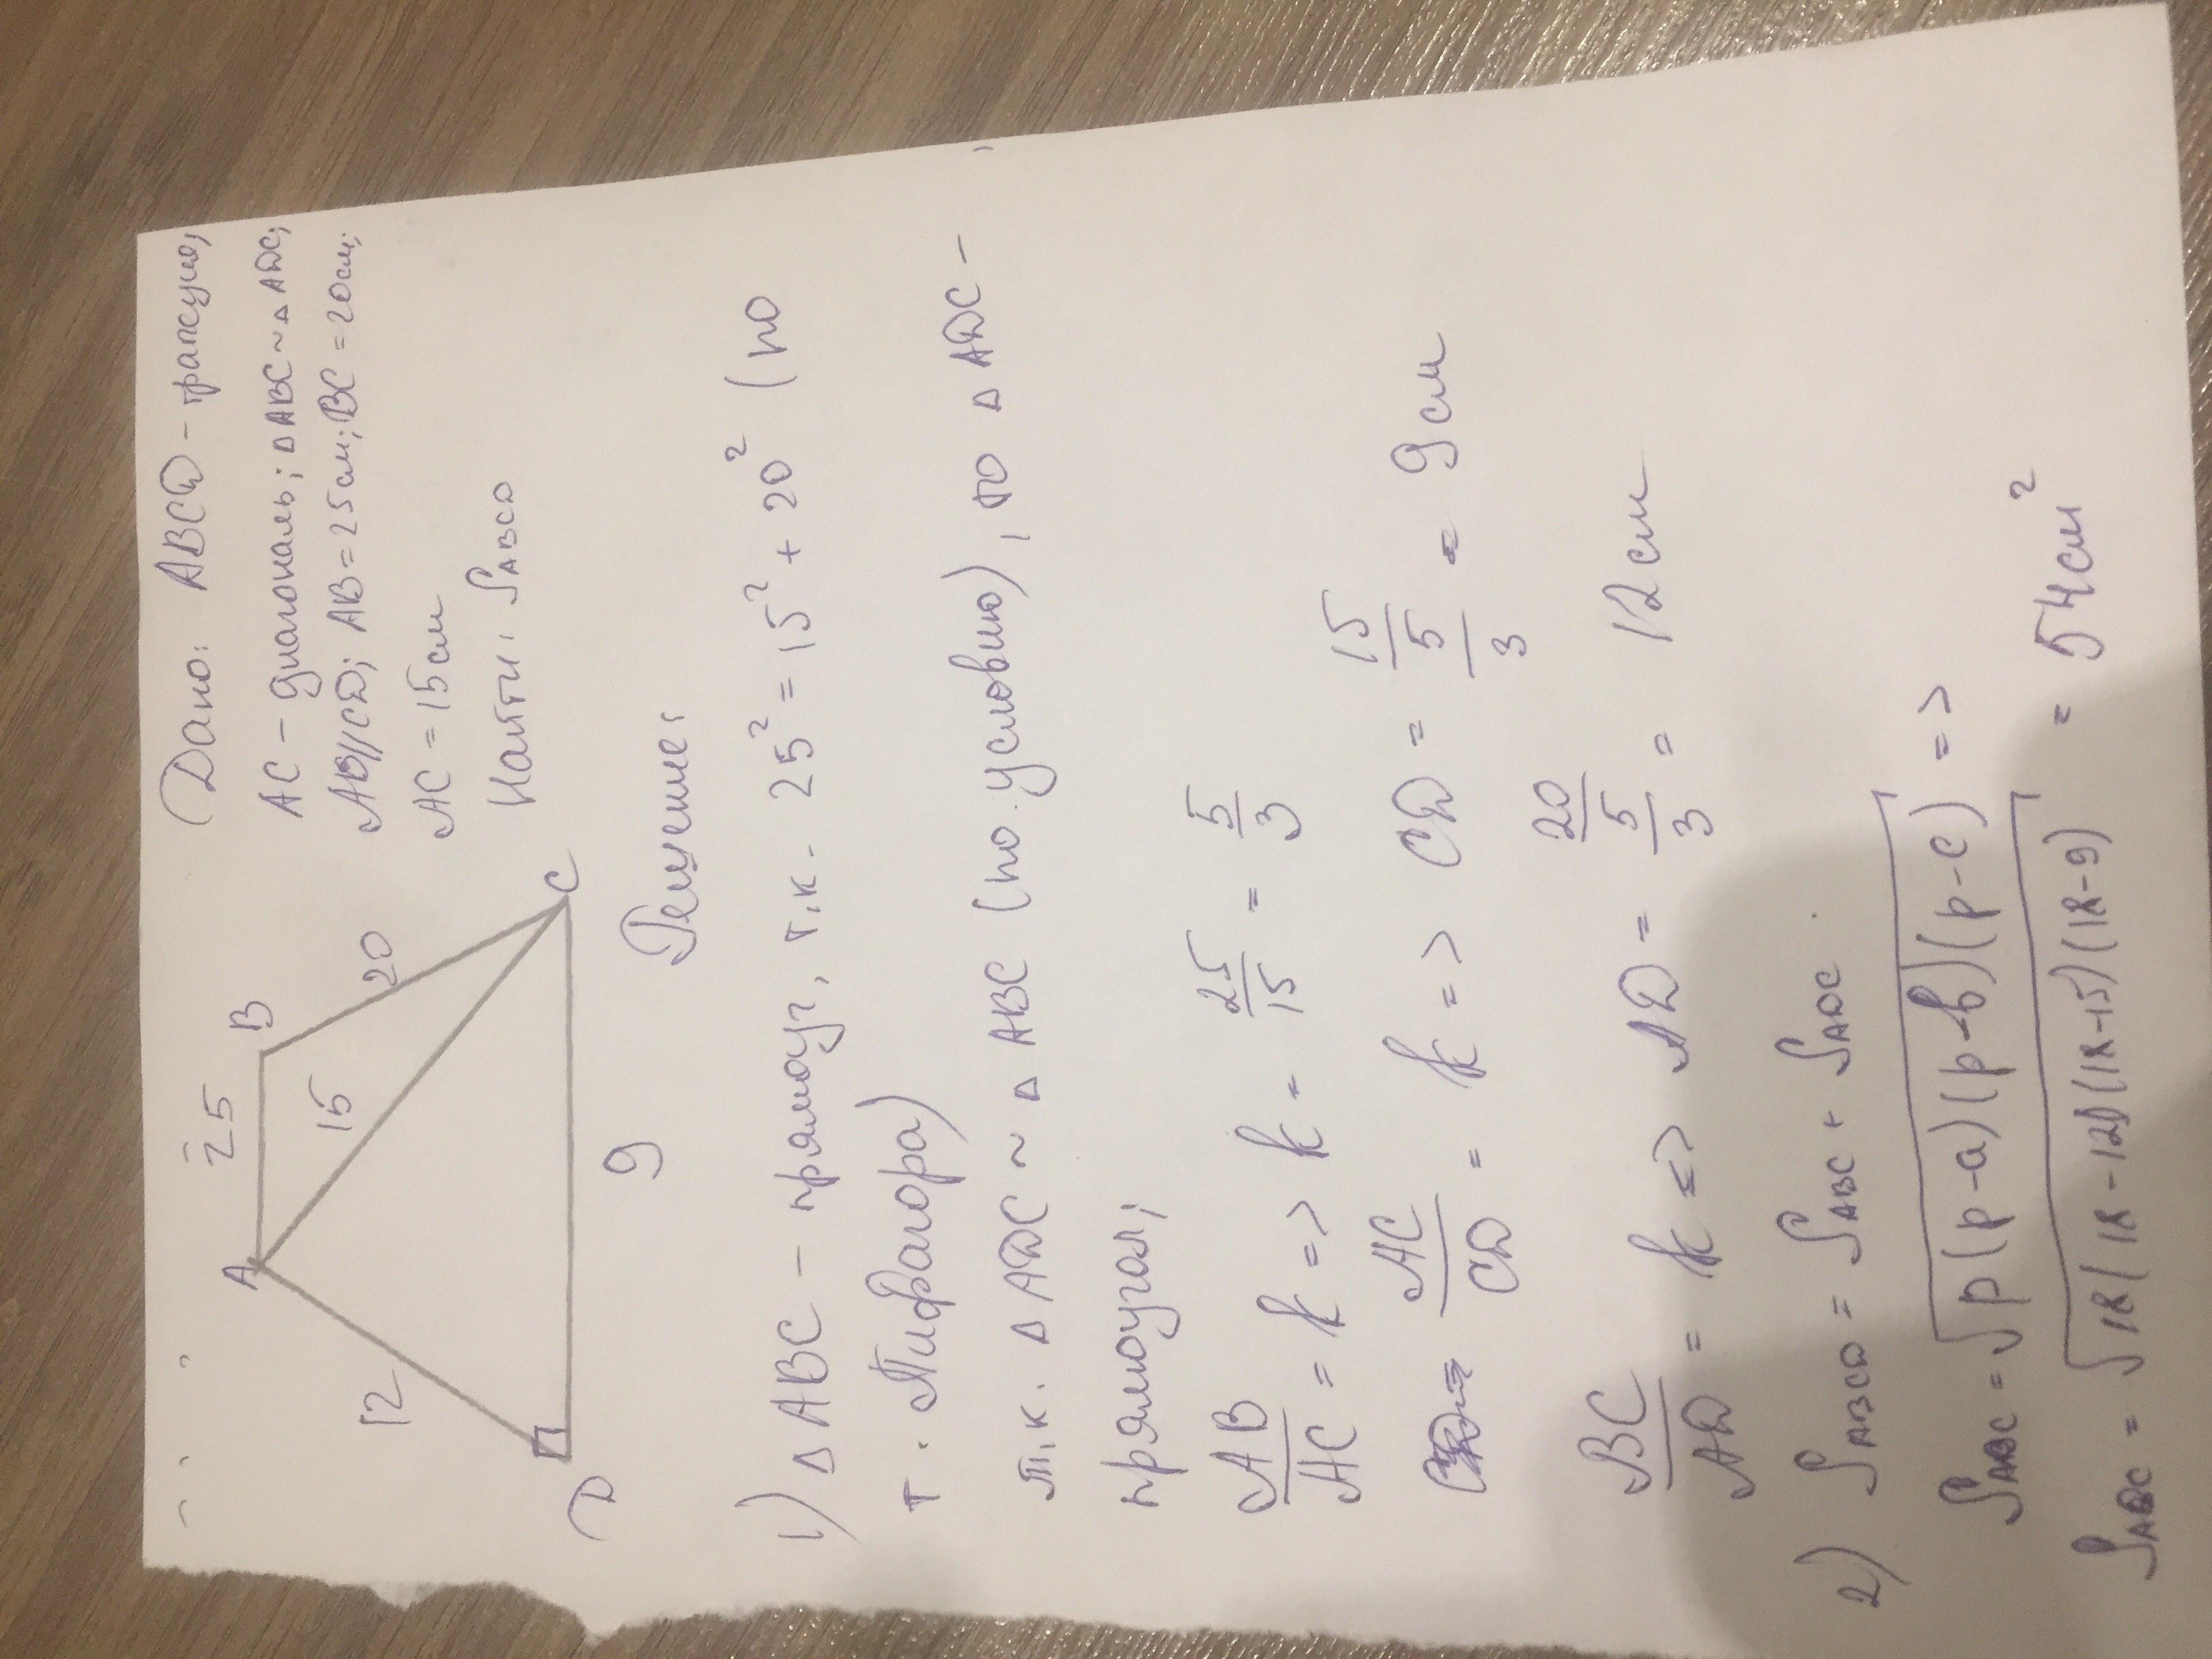 A
25
B
12
15
20
D
9
C
Дано: ABCD - трапеция,
AC - диагональ; ΔABC ~ Δ ADC;
AB//CD; AB = 25см; BC = 20см;
AC = 15см
Найти: SABCD
Решение:
1) Δ ABC - прямоуг, т.к. 25² = 15² + 20² (по
т. Пифагора)
т.к. Δ ADC ~ Δ ABC (по условию), то Δ ADC -
прямоугол;
AB/AC = k => k = 25/15 = 5/3
AC/CD = k => CD = 15/(5/3) = 9см
BC/AD = k => AD = 20/(5/3) = 12см
2) SABCD = SABC + SADC
SABC = √p(p-a)(p-b)(p-c) =>
= √18(18-12)(18-15)(18-9) = 54см²